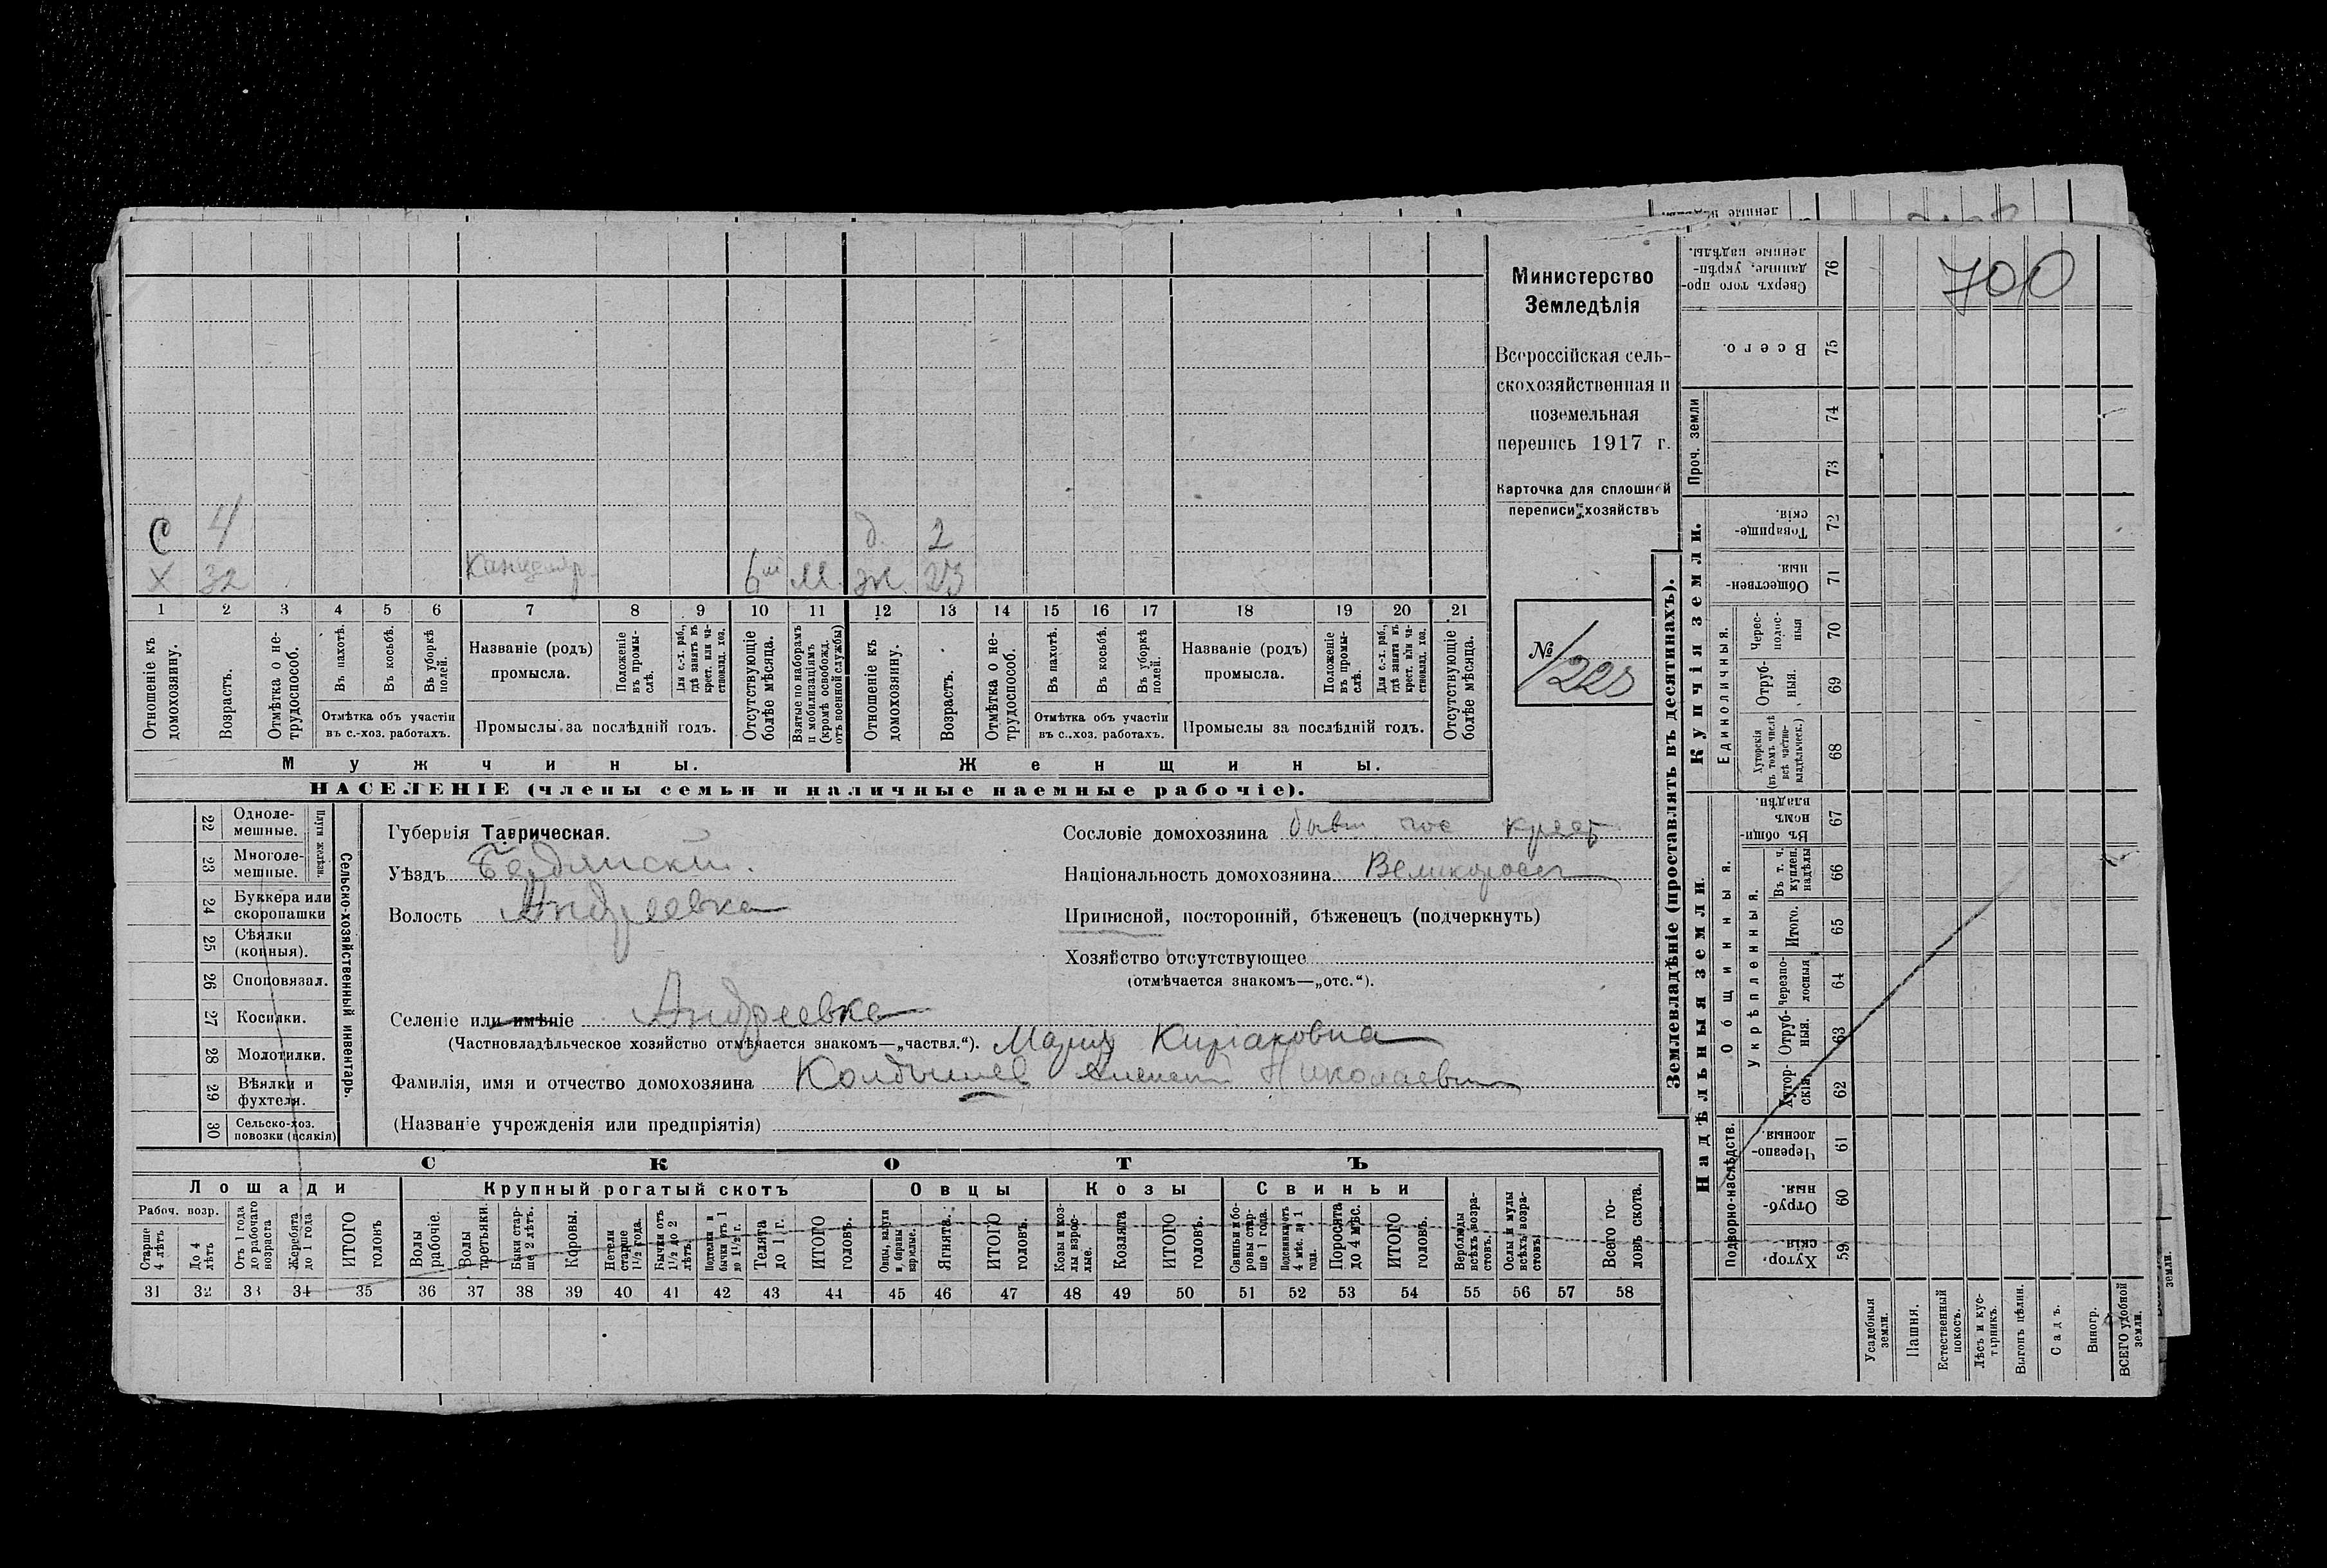 700
Министерство
Земледѣлія
Всероссійская сель-
скохозяйственная и
поземельная
перепись 1917 г.
Карточка для сплошной
переписи хозяйствъ
№ 1225
С 4 д. 2
Х 32 6 м. ж. 23
1 2 3 4 5 6 7 8 9 10 11 12 13 14 15 16 17 18 19 20 21
Отношеніе къ домохозяину.
Возрастъ.
Отмѣтка о не-трудоспособ.
Въ пахотѣ.
Въ косьбѣ.
Въ уборкѣ полей.
Отмѣтка объ участіи
въ с.-хоз. работахъ.
Названіе (родъ)
промысла.
Положеніе въ промы-слѣ.
Для с.-х. раб., гдѣ занятъ въ крест. или ча-стновлад. хоз.
Промыслы за послѣдній годъ.
Отсутствующіе болѣе мѣсяца.
Взятые по наборамъ и мобилизаціямъ (кромѣ освобожд. отъ военной службы)
Отношеніе къ домохозяину.
Возрастъ.
Отмѣтка о не-трудоспособ.
Въ пахотѣ.
Въ косьбѣ.
Въ уборкѣ полей.
Отмѣтка объ участіи
въ с.-хоз. работахъ.
Названіе (родъ)
промысла.
Положеніе въ промы-слѣ.
Для с.-х. раб., гдѣ занята въ крест. или ча-стновлад. хоз.
Промыслы за послѣдній годъ.
Отсутствующіе болѣе мѣсяца.
Мужчины. Женщины.
НАСЕЛЕНІЕ (члены семьи и наличные наемные рабочіе).
Сельско-хозяйственный инвентарь.
Плуги желѣзн.
22 Одноле-мешные.
23 Многоле-мешные.
24 Буккера или скоропашки
25 Сѣялки (конныя).
26 Сноповязал.
27 Косилки.
28 Молотилки.
29 Вѣялки и фухтеля.
30 Сельско-хоз. повозки (всякія)
Губернія Таврическая.
Уѣздъ Бердянскій.
Волость Андреевка
Селеніе или имѣніе Андреевка
(Частновладѣльческое хозяйство отмѣчается знакомъ—„частвл.“).
Марія Киріаковна
Фамилія, имя и отчество домохозяина Колдышев Николаевич
(Названіе учрежденія или предпріятія)
Сословіе домохозяина бывш гос крест
Національность домохозяина Великоросс
Приписной, посторонній, бѣженецъ (подчеркнуть)
Хозяйство отсутствующее
(отмѣчается знакомъ—„отс.“).
СКОТЪ
Лошади Крупный рогатый скотъ Овцы Козы Свиньи
Рабоч. возр.
Старше 4 лѣтъ
До 4 лѣтъ
Отъ 1 года до рабочаго возраста
Жеребята до 1 года
ИТОГО головъ
Волы рабочіе.
Волы третьяки.
Быки стар-ше 2 лѣтъ.
Коровы.
Нетели старше 1½ года.
Бычки отъ 1½ до 2 лѣтъ
Подтелки и бычки отъ 1 до 1½ г.
Телята до 1 г.
ИТОГО головъ.
Овцы, валухи и бараны взрослые.
Ягнята.
ИТОГО головъ.
Козы и коз-лы взрос-лые.
Козлята
ИТОГО головъ.
Свиньи и бо-ровы стар-ше 1 года.
Подсвинки отъ 4 мѣс. до 1 года.
Поросята до 4 мѣс.
ИТОГО головъ.
Верблюды всѣхъ возра-стовъ.
Ослы и мулы всѣхъ возра-стовъ
Всего го-ловъ скота.
31 32 33 34 35 36 37 38 39 40 41 42 43 44 45 46 47 48 49 50 51 52 53 54 55 56 57 58
Землевладѣніе (проставлять въ десятинахъ).
Купчія земли.
Надѣльныя земли.
Сверхъ того про-данные, укрѣп-ленные надѣлы. 76
Всего. 75
Проч. земли
74
73
Товарище-скія. 72
Обществен-ныя. 71
Единоличныя.
Черес-полос-ныя 70
Отруб-ныя. 69
Хуторскія (въ томъ числѣ всѣ частно-владѣльческ.) 68
Общинныя.
Въ общи-номъ владѣн. 67
Укрѣпленныя.
Въ т. ч. куплен. надѣлы 66
Итого. 65
Черезпо-лосныя 64
Отруб-ныя. 63
Хутор-скія. 62
Подворно-наслѣдств.
Черезпо-лосныя. 61
Отруб-ныя. 60
Хутор-скія. 59
Усадебныя земли.
Пашня.
Естественный покосъ.
Лѣсъ и кус-тарникъ.
Выгонъ цѣлин.
Садъ.
Виногр.
ВСЕГО удобной земли.